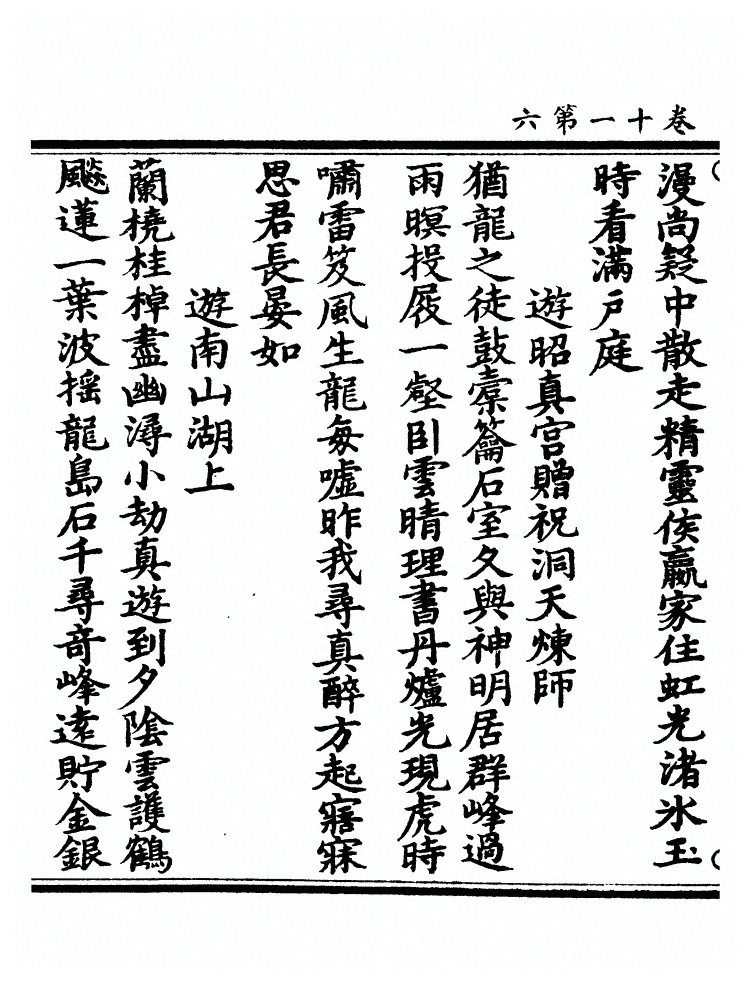 卷十一第六
漫尚疑中散走精靈侯嬴家住虹光渚氷玉
時看滿戶庭
遊昭真宮贈祝洞天煉師
猶龍之徒鼓橐籥石室夂與神明居群峰過
雨暝投屐一壑臥雲晴理書丹爐光現虎時
嘯雷笈風生龍每噓昨我尋真醉方起寤寐
思君長晏如
遊南山湖上
蘭橈桂棹盡幽潯小劫真遊到夕陰雲護鶴
飈蓮一葉波揺龍島石千尋竒峰遠貯金銀